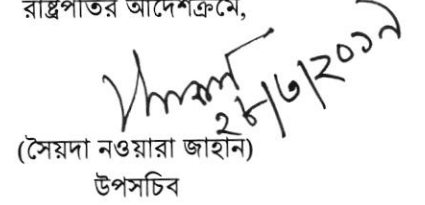 রাষ্ট্রপতির আদেশক্রমে,
২৮/৩/২০১৯
(সৈয়দা নওয়ারা জাহান)
উপসচিব